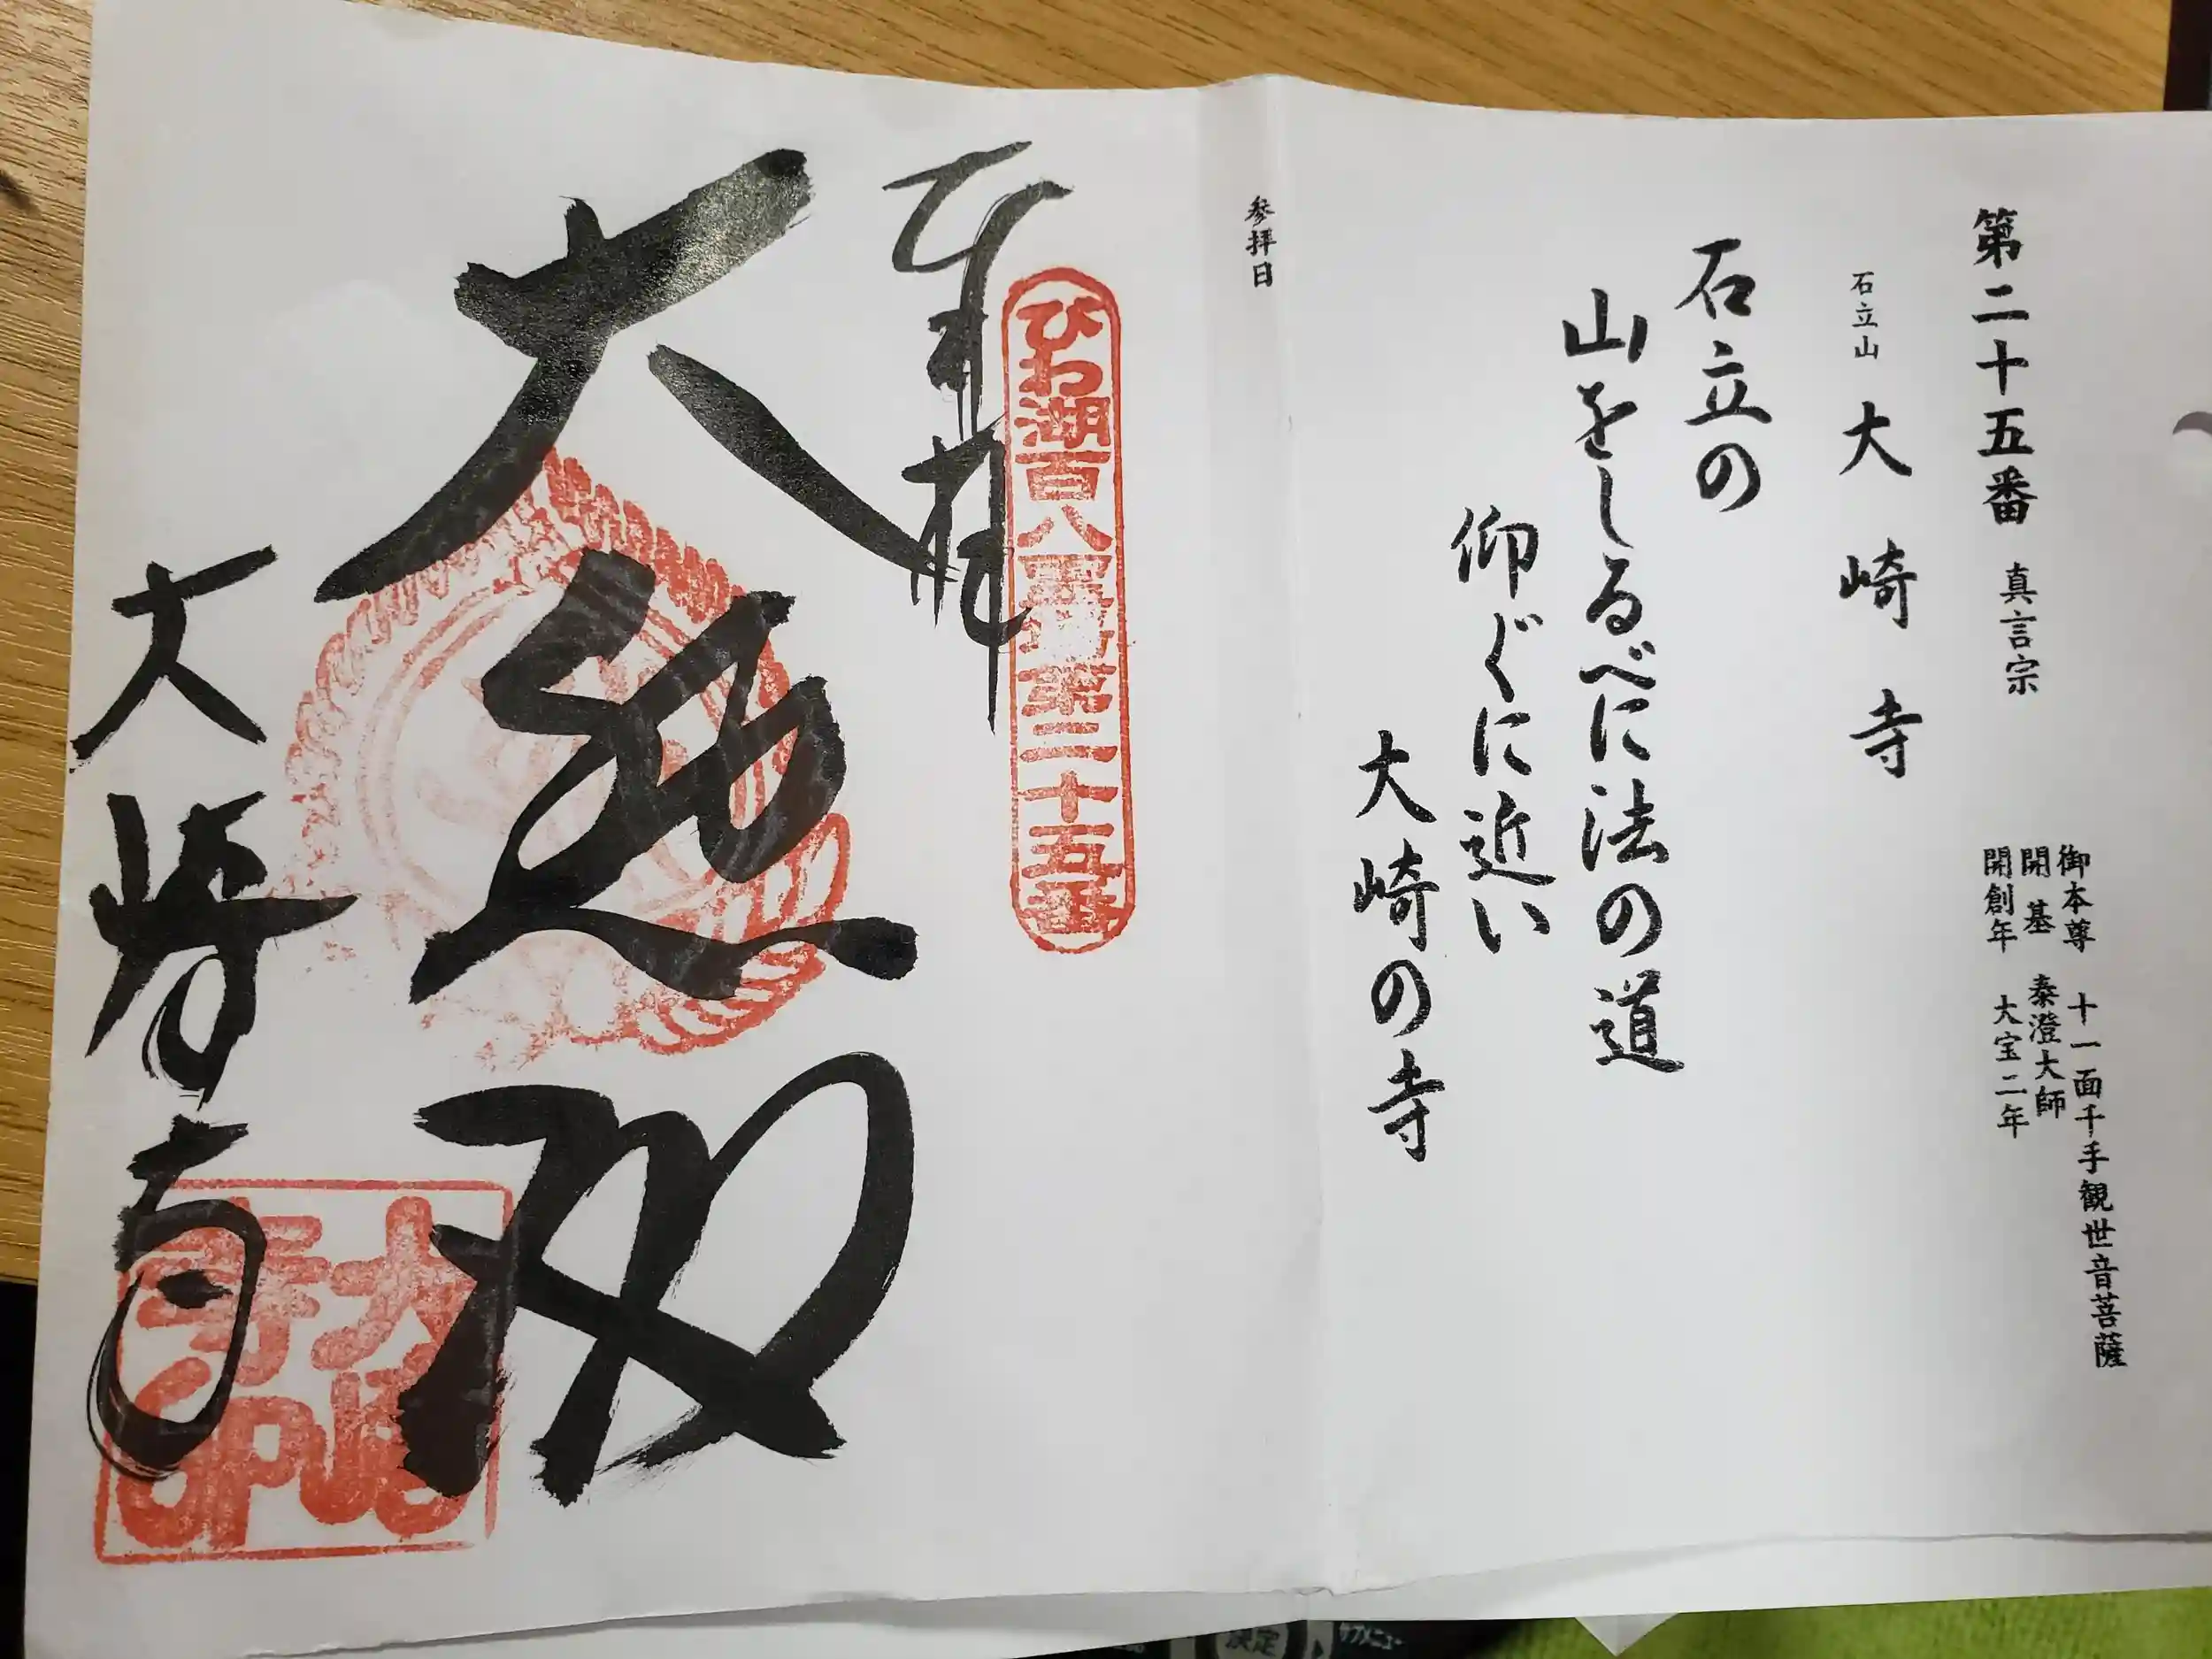 第二十五番 真言宗
御本尊 十一面千手観世音菩薩
開基 泰澄大師
開創年 大宝二年
石立山 大崎寺
石立の
山をしるべに法の道
仰ぐに近い
大崎の寺
参拝日
奉拝
びわ湖百八霊場第二十五番
大悲殿
大崎寺
大崎寺印
決定
サブメニュー